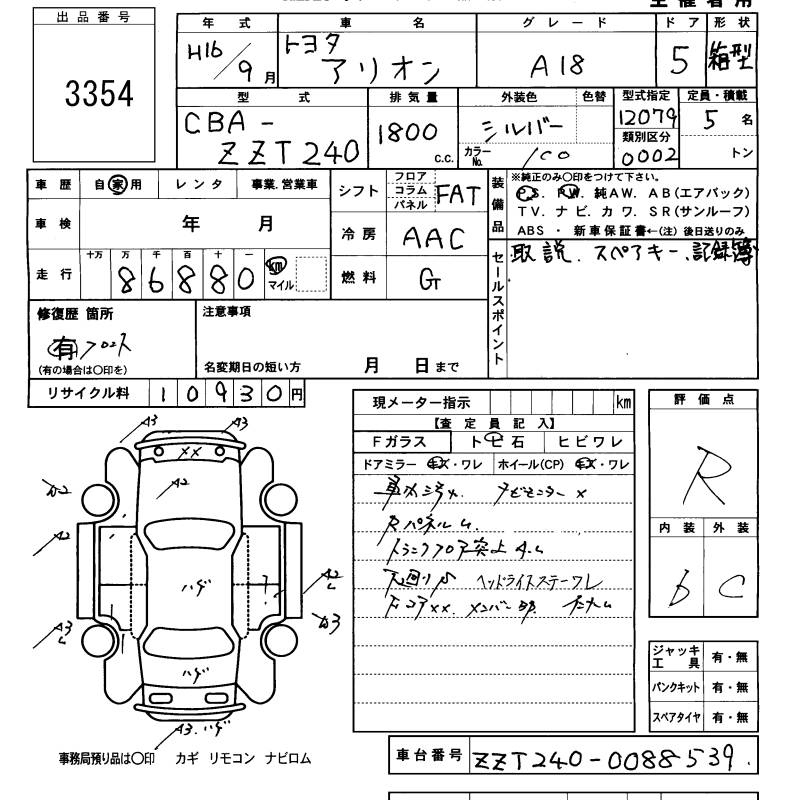 出品番号
3354
年式
H16/9月
車名
トヨタ
アリオン
グレード
A18
ドア
5
形状
箱型
型式
CBA-
ZZT240
排気量
1800
c.c.
外装色
シルバー
色替
カラーNo.
1C0
型式指定
12079
類別区分
0002
定員・積載
5名
トン
車歴
自家用
レンタ
事業.営業車
車検
年 月
走行
十万 万 千 百 十 一
86880
km
マイル
シフト
フロア
コラム
パネル
FAT
冷房
AAC
燃料
G
装備品
※純正のみ○印をつけて下さい。
P.S. P.W. 純AW. AB(エアバック)
TV. ナビ. カワ. SR(サンルーフ)
ABS ・ 新車保証書←(注) 後日送りのみ
セールスポイント
取説. スペアキー. 記録簿
修復歴 箇所
有 フロント
(有の場合は○印を)
注意事項
名変期日の短い方 月 日まで
リサイクル料
10930円
現メーター指示
km
【査定員記入】
Fガラス
トビ石
ヒビワレ
ドアミラー キズ・ワレ
ホイール(CP) キズ・ワレ
ナビモニター ×
トランクフロア突上
ヘッドライトステーワレ
評価点
R
内装
外装
b
C
ジャッキ
工具
有・無
パンクキット
有・無
スペアタイヤ
有・無
A3
A3
××
A2
A2
ハゲ
A2
A3
ハゲ
A3.ハゲ
事務局預り品は○印 カギ リモコン ナビロム
車台番号
ZZT240-0088539.